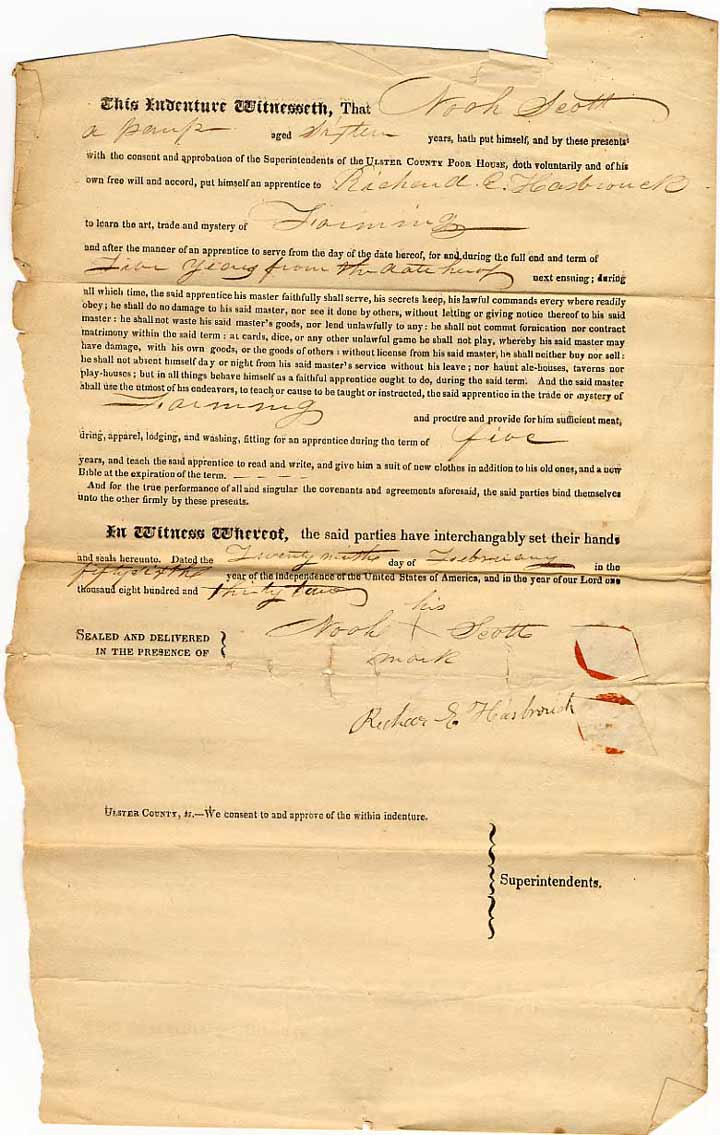 This Indenture Witnesseth, That Noah Scott
a paup aged Sixteen years, hath put himself, and by these presents
with the consent and approbation of the Superintendents of the ULSTER COUNTY POOR HOUSE, doth voluntarily and of his
own free will and accord, put himself an apprentice to Richard E. Hasbrouck
to learn the art, trade and mystery of Farming
and after the manner of an apprentice to serve from the day of the date hereof, for and during the full end and term of
Five years from the date herof next ensuing; during
all which time, the said apprentice his master faithfully shall serve, his secrets keep, his lawful commands every where readily
obey; he shall do no damage to his said master, nor see it done by others, without letting or giving notice thereof to his said
master: he shall not waste his said master's goods, nor lend unlawfully to any: he shall not commit fornication nor contract
matrimony within the said term: at cards, dice, or any other unlawful game he shall not play, whereby his said master may
have damage, with his own goods, or the goods of others: without license from his said master, he shall neither buy nor sell:
he shall not absent himself day or night from his said master's service without his leave; nor haunt ale-houses, taverns nor
play-houses; but in all things behave himself as a faithful apprentice ought to do, during the said term. And the said master
shall use the utmost of his endeavors, to teach or cause to be taught or instructed, the said apprentice in the trade or mystery of
Farming and procure and provide for him sufficient meat,
dring, apparel, lodging, and washing, fitting for an apprentice during the term of five
years, and teach the said apprentice to read and write, and give him a suit of new clothes in addition to his old ones, and a new
Bible at the expiration of the term.
And for the true performance of all and singular the covenants and agreements aforesaid, the said parties bind themselves
unto the other firmly by these presents.
In Witness Whereof, the said parties have interchangably set their hands
and seals hereunto. Dated the Twenty ninth day of February in the
fifty sixth year of the independence of the United States of America, and in the year of our Lord one
thousand eight hundred and thirty two
his
SEALED AND DELIVERED Noah Scott
IN THE PRESENCE OF mark
Richard E Hasbrouck
ULSTER COUNTY, ss.—We consent to and approve of the within indenture.
Superintendents.